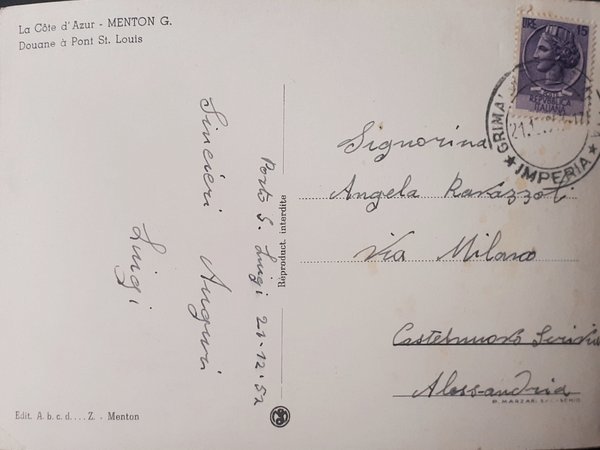 La Côte d'Azur - MENTON G.
Douane à Pont St. Louis
LIRE 15
POSTE
REPVBBLICA
ITALIANA
GRIMA
★ IMPERIA ★
Signorina
Angela Ravazzoti
Via Milano
Castelnuovo Scrivia
Alessandria
Sinceri Auguri
Luigi
Ponte S. Luigi 21-12-52
Reproduct. interdite
Edit. A. b. c. d.... Z. - Menton
P. MARZARI